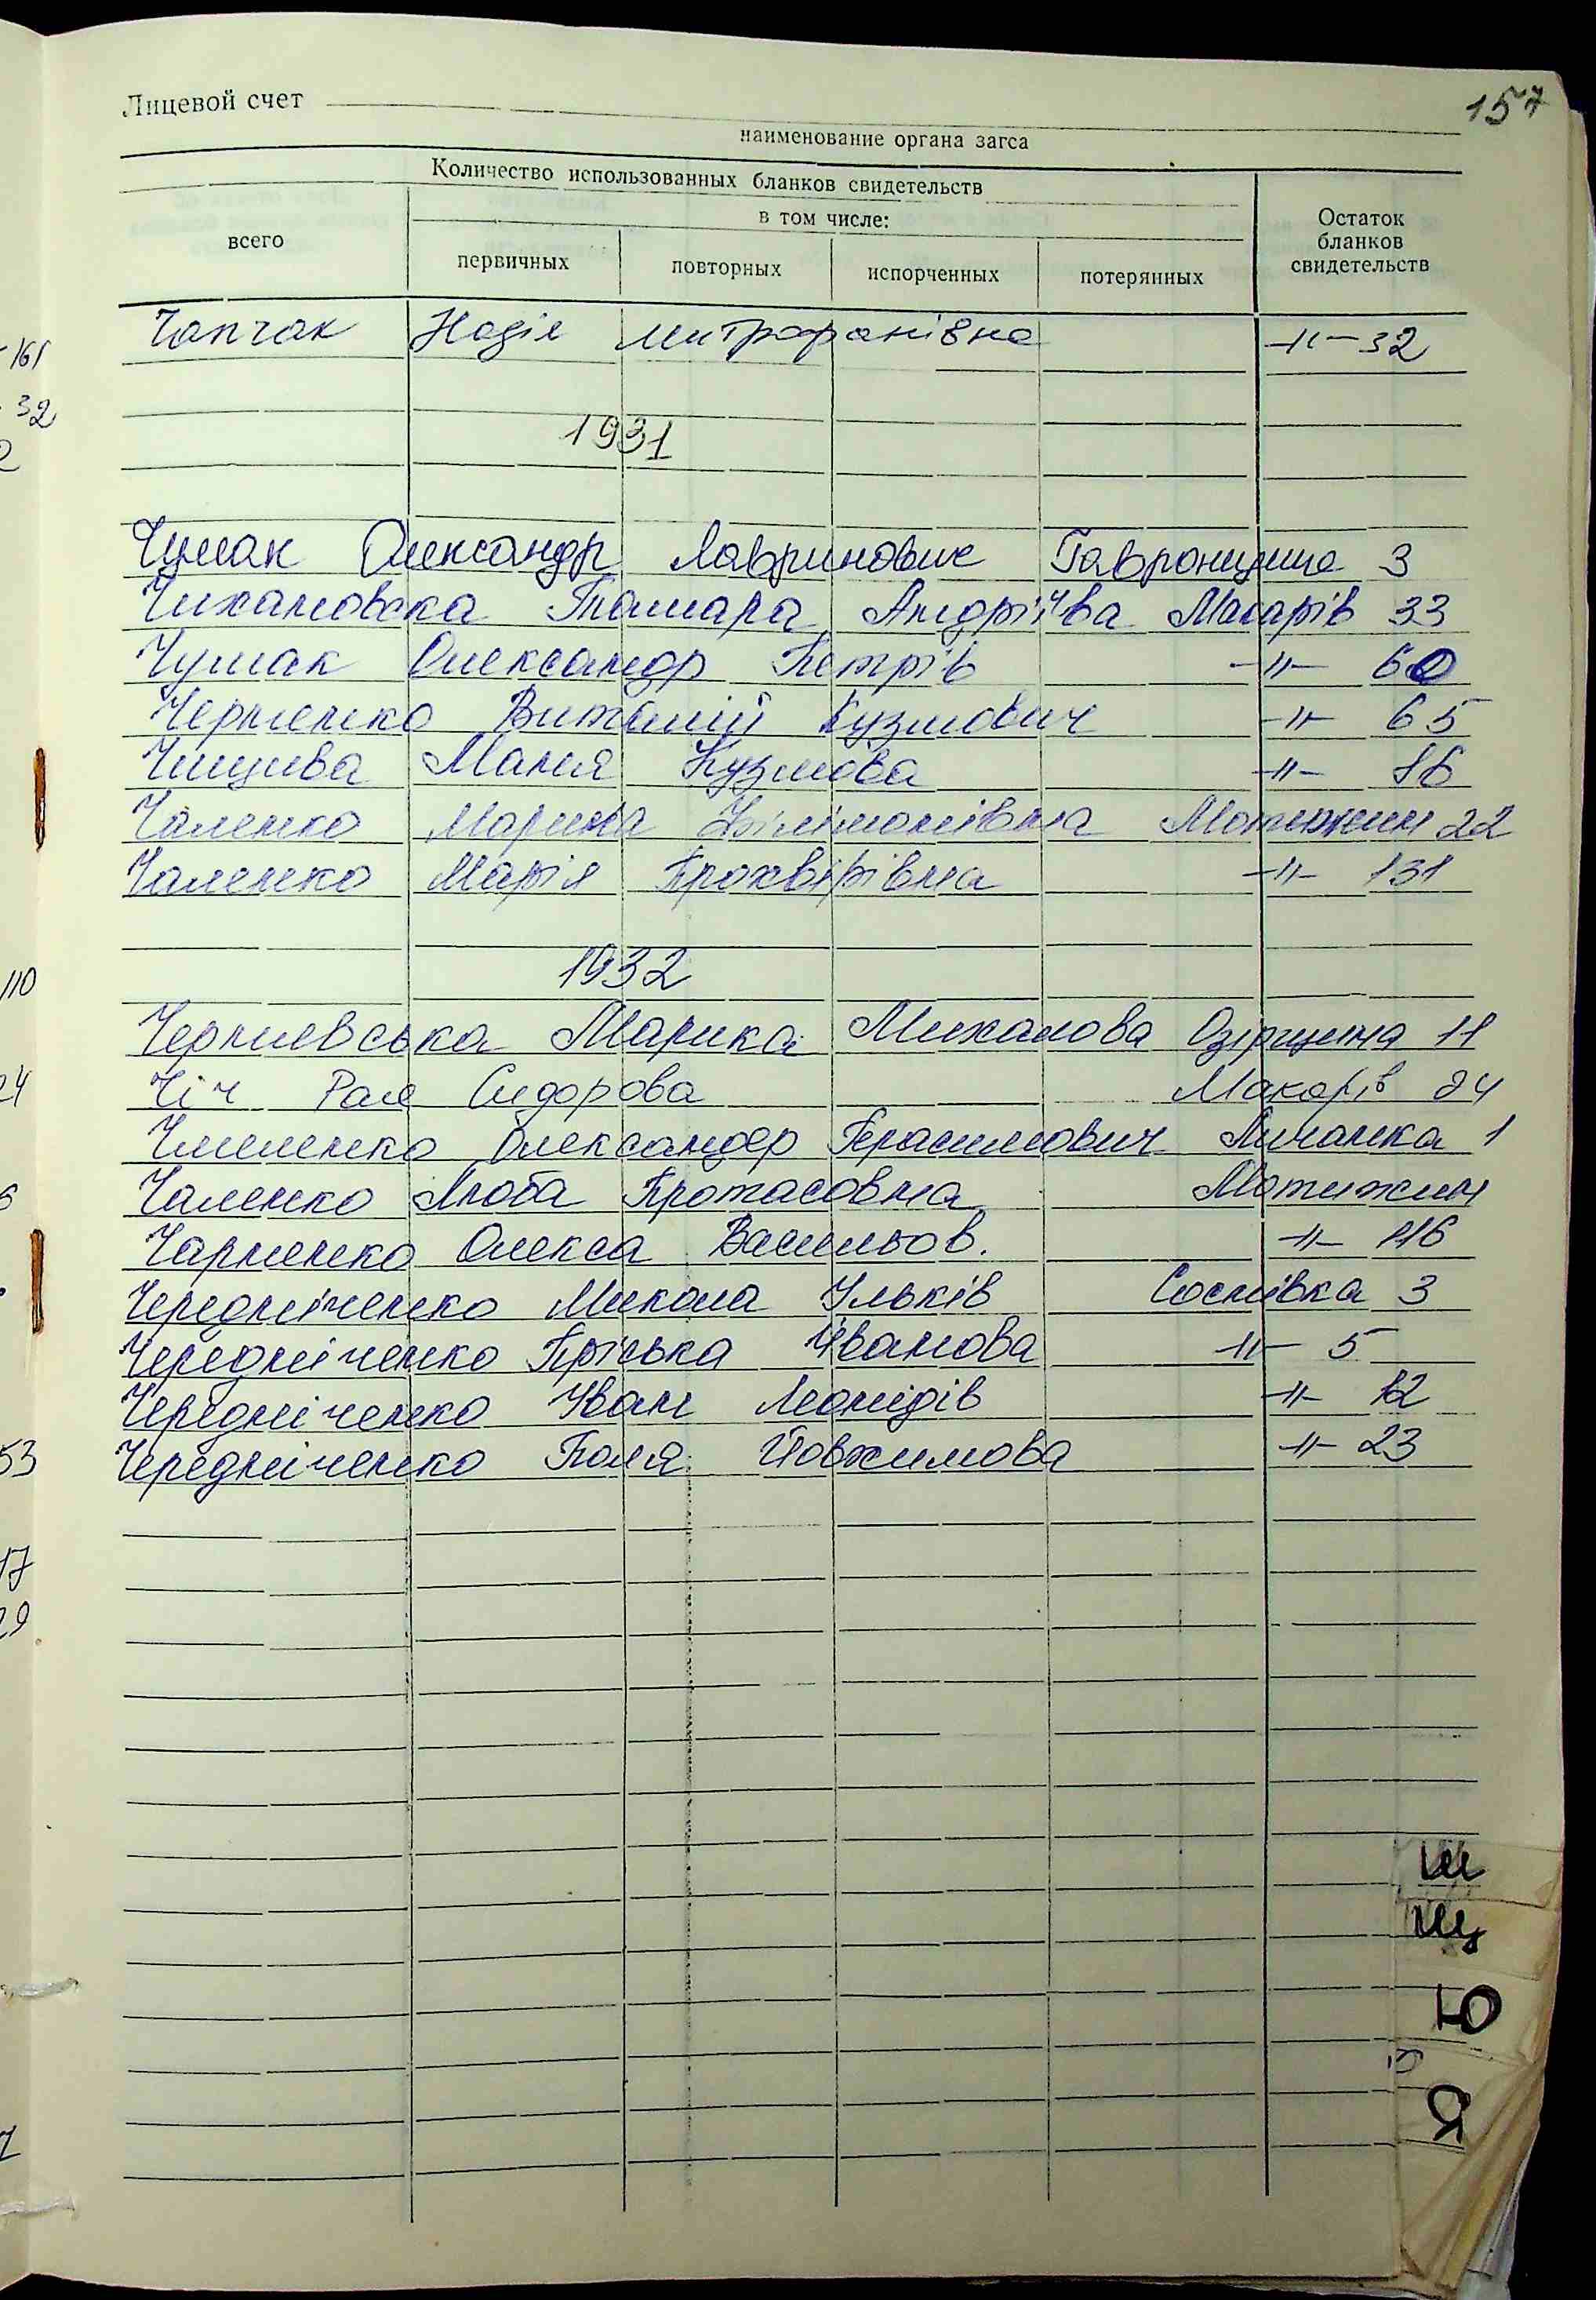 157
Лицевой счет
наименование органа загса
Количество использованных бланков свидетельств
в том числе:
всего
первичных
повторных
испорченных
потерянных
Остаток
бланков
свидетельств
Чапчак Надія Митрофанівна -"- 32
1931
Чумак Олександр Лавринович Гавронщина 3
Чихановска Тамара Андріїва Макарів 33
Чумак Олександр Петрів -"- 60
Черненко Виталий Кузмович -"- 65
Маня Кузмова -"- 86
Чаленко Марина Філімонівна Мотижин 22
Чаленко Марія -"- 131
1932
Черниевська Марика Миханова Озірщина 11
Чіч Рая Сидорова Макарів 84
Олександер Герасимович Личанка 1
Чаленко Люба Протасовна Мотижин
Чарненко Олекса Васильов. -"-
Чередніченко Микола Ульків Соснівка 3
Чередніченко Пріська Іванова -"- 5
Чередніченко Іван Леонідів -"- 12
Чередніченко Поля Йовхимова -"- 23
161
32
2
110
24
53
17
29
Ш
Щ
Ю
Я